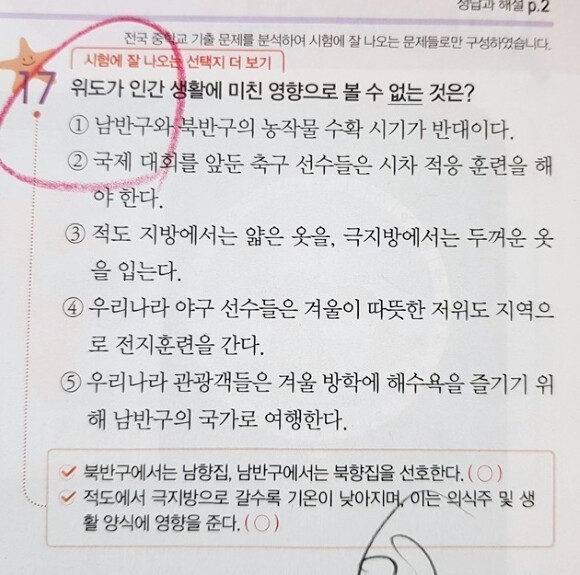 정답과 해설 p.2
전국 중학교 기출 문제를 분석하여 시험에 잘 나오는 문제들로만 구성하였습니다.
시험에 잘 나오는 선택지 더 보기
17 위도가 인간 생활에 미친 영향으로 볼 수 없는 것은?
① 남반구와 북반구의 농작물 수확 시기가 반대이다.
② 국제 대회를 앞둔 축구 선수들은 시차 적응 훈련을 해
야 한다.
③ 적도 지방에서는 얇은 옷을, 극지방에서는 두꺼운 옷
을 입는다.
④ 우리나라 야구 선수들은 겨울이 따뜻한 저위도 지역으
로 전지훈련을 간다.
⑤ 우리나라 관광객들은 겨울 방학에 해수욕을 즐기기 위
해 남반구의 국가로 여행한다.
북반구에서는 남향집, 남반구에서는 북향집을 선호한다. (○)
적도에서 극지방으로 갈수록 기온이 낮아지며, 이는 의식주 및 생
활 양식에 영향을 준다. (○)